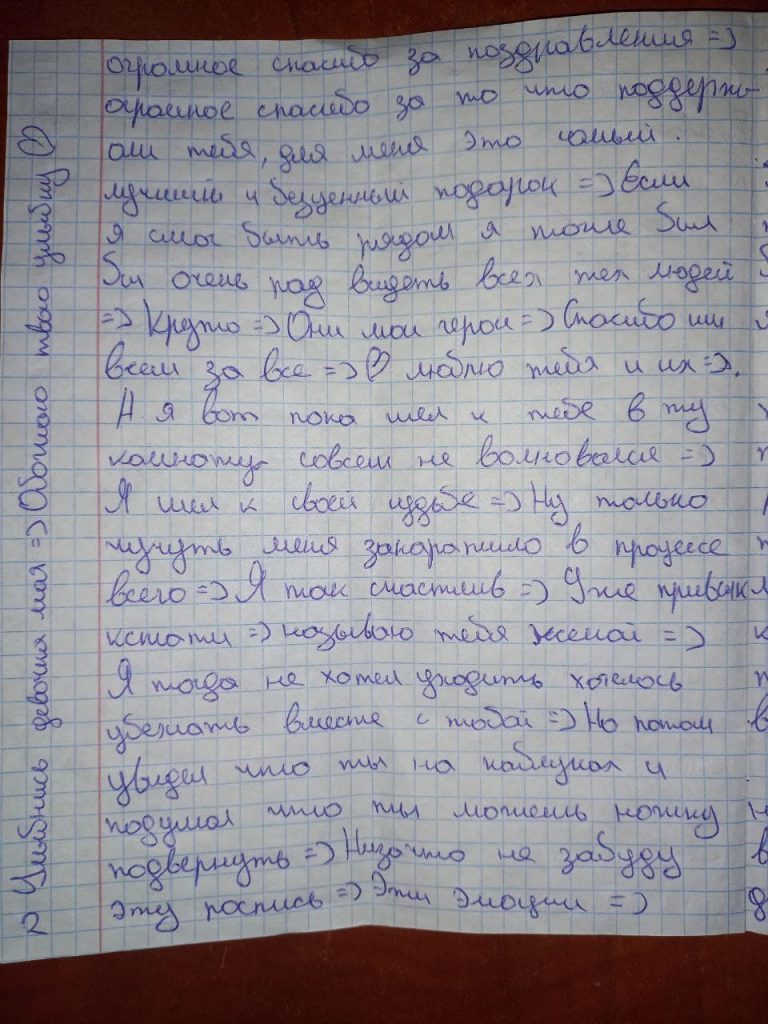 огромное спасибо за поздравления =)
огромное спасибо за то что поддерж-
али тебя, для меня это самый
лучший и безценный подарок =) Если
я смог быть рядом я тоже был
бы очень рад видеть всех тех людей
=) Круто =) Они мои герои =) Спасибо им
всем за все =) ♡ люблю тебя и их =).
А я вот пока шел к тебе в ту
комнату совсем не волновался =)
Я шел к своей судьбе =) Ну только
чучуть меня закоратило в процессе
всего =) Я так счастлив =) Уже привык
кстати =) называю тебя женой =)
Я тогда не хотел уходить хотелось
убежать вместе с тобой =) Но потом
увидел что ты на каблуках и
подумал что ты можешь ножку
подвернуть =) Низачто не забуду
эту роспись =) Эти эмоции =)
2 Улыбнись девочка моя =) Обожаю твою улыбку ♡